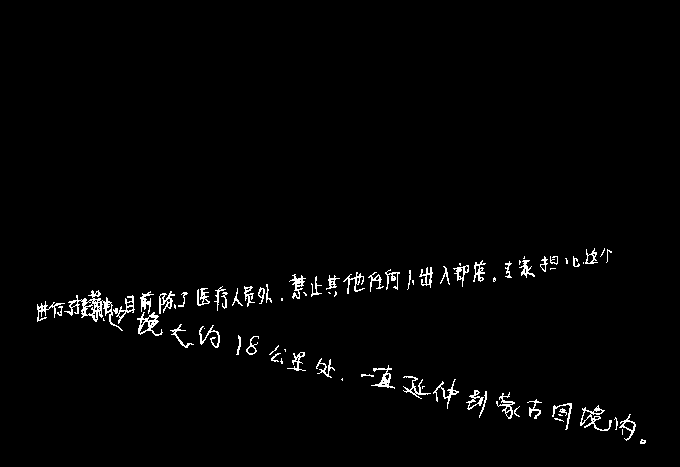 进行目前除了医疗人员外,禁止其他任何人出入部落。专家担心这个
境大约18公里处,一直延伸到蒙古国境内。